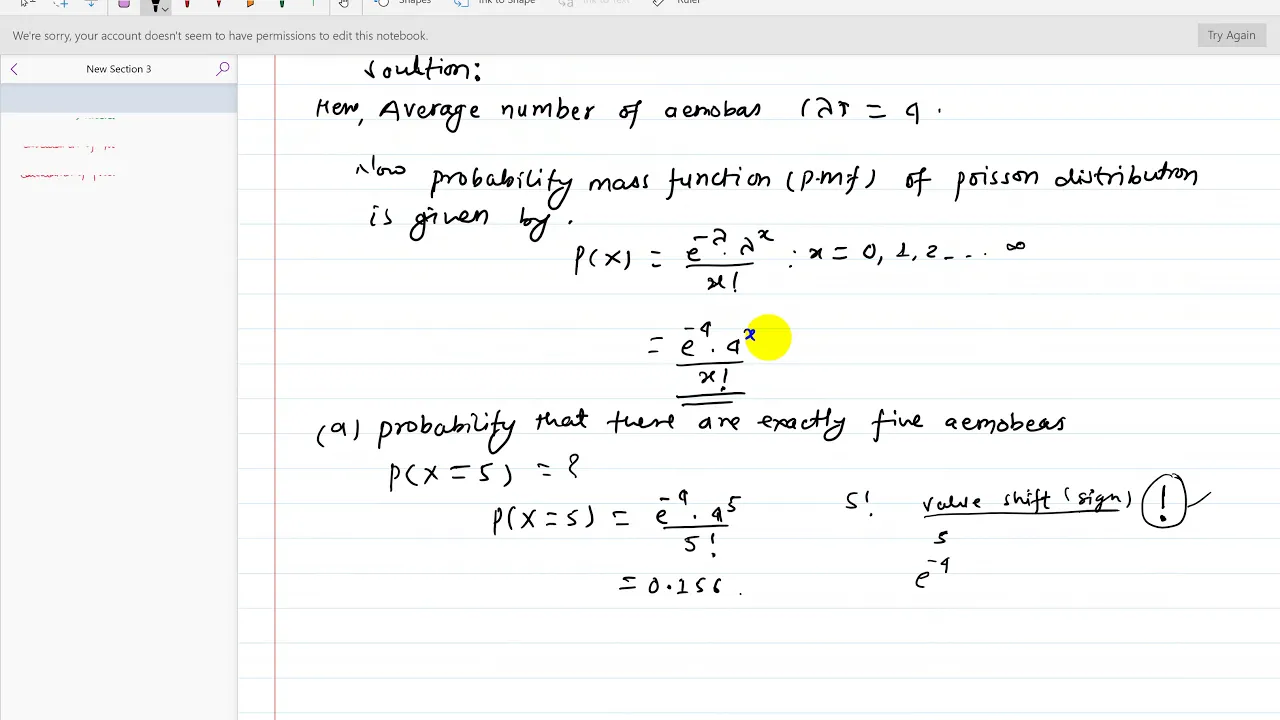 Shapes Ink to Shape Ink to Text Ruler
We're sorry, your account doesn't seem to have permissions to edit this notebook. Try Again
New Section 3
soultion:
Here, Average number of aemobas (λ) = 4.
Now probability mass function (p.m.f) of poisson distribution
is given by.
P(X) = e^-λ · λ^x / x! : x = 0, 1, 2 - . . . ∞
= e^-4 · 4^x / x!
(a) probability that there are exactly five aemobeas
P(X = 5) = ?
P(X = 5) = e^-4 · 4^5 / 5!
= 0.156.
5! value shift (sign) !
5
e^-4